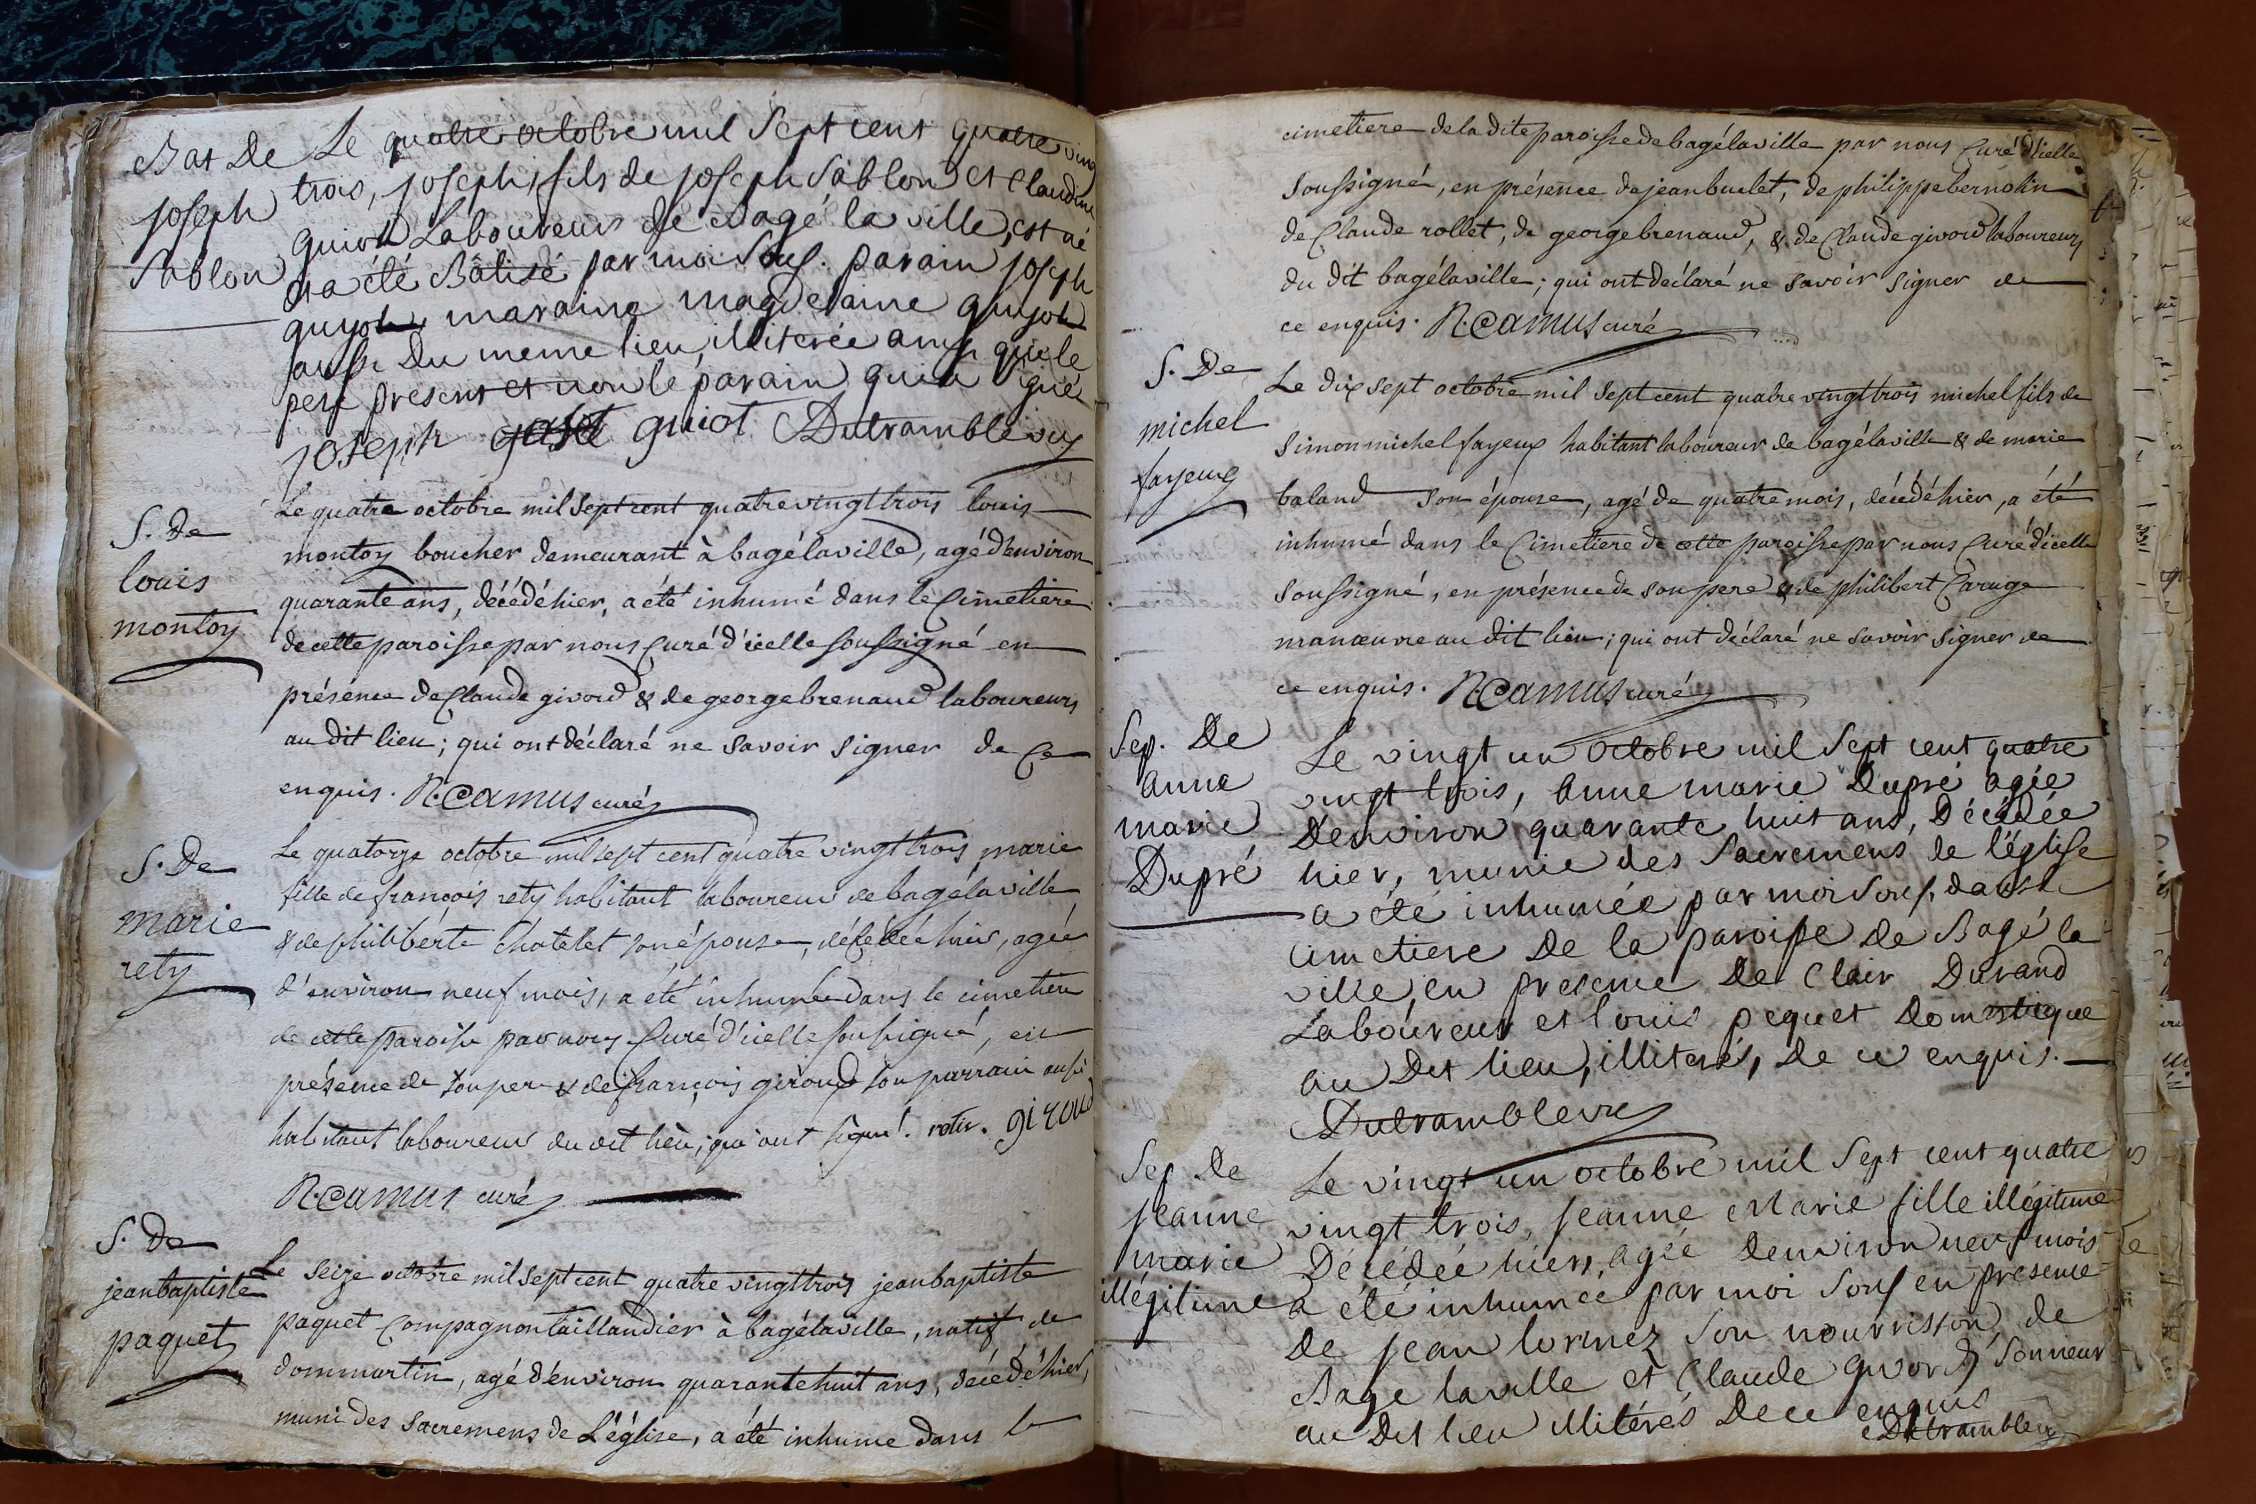 Bat De
joseph
Sablon
Le quatre octobre mil Sept cent quatre ving
trois, joseph, fils de joseph Sablon et Claudine
guiot Laboureurs de Bagé la ville, est né
et a été Bâtisé par moi Sous. parain joseph
guyot, maraine magdelaine guyot
aussi Du meme lieu, illiterée ainsi que le
pere present et non le parain qui a signé
joseph guiot Dutrambleviez
S. De
louis
montoy
Le quatre octobre mil sept cent quatre vingt trois louis
montoy boucher demeurant à bagélaville, agé d'environ
quarante ans, décédé hier, a été inhumé dans le Cimetiere
de cette paroisse par nous Curé d'icelle soussigné en
présence de Claude givord & de george brenaud laboureurs
au dit lieu; qui ont déclaré ne savoir signer de ce
enquis. R. Camus curé
S. De
marie
rety
Le quatorze octobre mil sept cent quatre vingt trois marie
fille de françois rety habitant laboureur de bagélaville
& de philiberte Chatelet son épouse, décédée hier, agée
d'environ neuf mois, a été inhumée dans le cimetiere
de cette paroisse par nous Curé d'icelle soussigné, en
présence de son pere & de françois giroud son parrain aussi
habitant laboureur du dit lieu; qui ont signé. retir. giroud
R. Camus curé
S. De
jeanbaptiste
paquet
Le seize octobre mil sept cent quatre vingt trois jeanbaptiste
paquet Compagnon taillandier à bagélaville, natif de
dommartin, agé d'environ quarante huit ans, décédé hier,
muni des sacremens de L'église, a été inhumé dans le
cimetiere de la dite paroisse de bagélaville par nous Curé d'icelle
soussigné, en présence de jean buclet, de philippe bernolin
de Claude rollet, de george brenaud, & de Claude givord laboureurs
du dit bagélaville; qui ont déclaré ne savoir signer de
ce enquis. R. Camus curé
S. De
michel
fayeux
Le dix sept octobre mil sept cent quatre vingt trois michel fils de
simon michel fayeux habitant laboureur de bagélaville & de marie
baland son épouse, agé de quatre mois, décédé hier, a été
inhumé dans le Cimetiere de cette paroisse par nous Curé d'icelle
soussigné, en présence de son pere & de philibert Caruge
manœuvre au dit lieu; qui ont déclaré ne savoir signer de
ce enquis. R. Camus curé
Sep. De
anne
marie
Dupré
Le vingt un octobre mil Sept cent quatre
vingt trois, anne marie Dupré agée
D'environ quarante huit ans, Décédée
hier, munie des Sacremens de l'église
a été inhumée par moi Sous. dans le
cimetiere De la paroisse de Bagé la
ville, en presence De Clair Durand
Laboureur et louis pequet Domestique
au Dit lieu, illiterés, De ce enquis.
Dutrambleviez
Sep. De
jeanne
marie
illégitime
Le vingt un octobre mil Sept cent quatre
vingt trois, jeanne Marie fille illégitime
Décédée hier, agée denviron neuf mois
a été inhumée par moi Sous en presence
De jean lormez Son nourrisson, de
Bage laville et Claude givord Sonneur
au Dit lieu illiterés De ce enquis
Dutrambleviez